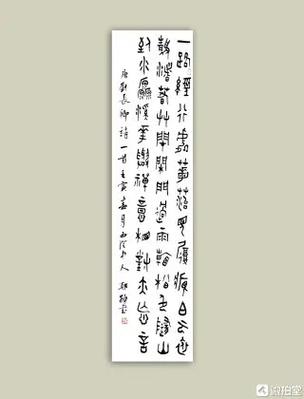 一路經行處莓苔見履痕白云依
靜渚春草閉閒門過雨看松色隨山
到水源溪花與禪意相對亦忘言
唐劉長卿詩一首壬寅嘉月山人
微拍堂